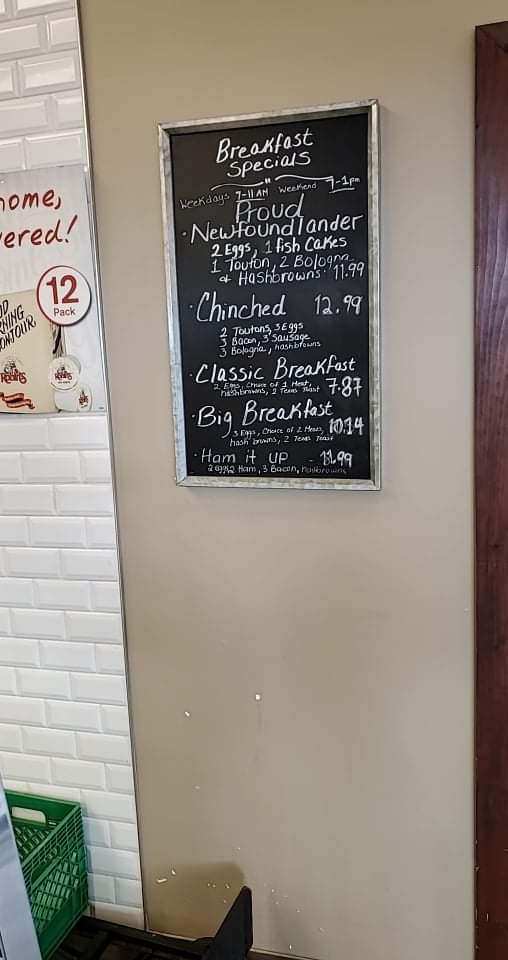 ome,
ered!
12
Pack
Robin's
Breakfast
Specials
Weekdays 7-11 AM Weekend 7-1pm
Proud
· Newfoundlander
2 Eggs, 1 fish Cakes
1 Touton, 2 Bologna
+ Hashbrowns 11.99
· Chinched 12.99
2 Toutons, 3 Eggs
3 Bacon, 3 Sausage
3 Bologna, hashbrowns
· Classic Breakfast
2 Eggs, Choice of 1 Meat, 7.87
hashbrowns, 2 Texas Toast
· Big Breakfast
3 Eggs, Choice of 2 Meats, 10.14
hash browns, 2 Texas Toast
· Ham it up - 11.99
2 eggs, 2 Ham, 3 Bacon, hashbrowns